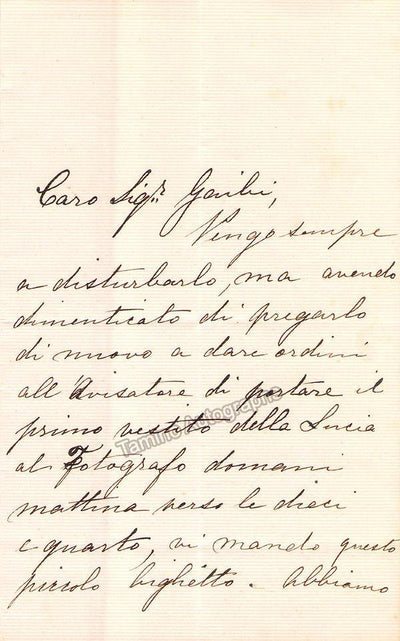 Caro Sigr. Gaibi,
Vengo sempre
a disturbarlo, ma avendo
dimenticato di pregarlo
di nuovo a dare ordini
all'Avisatore di portare il
primo vestito della Lucia
al Fotografo domani
mattina verso le dieci
e quarto, vi mando questo
piccolo biglietto. Abbiamo
Tamino Autographs